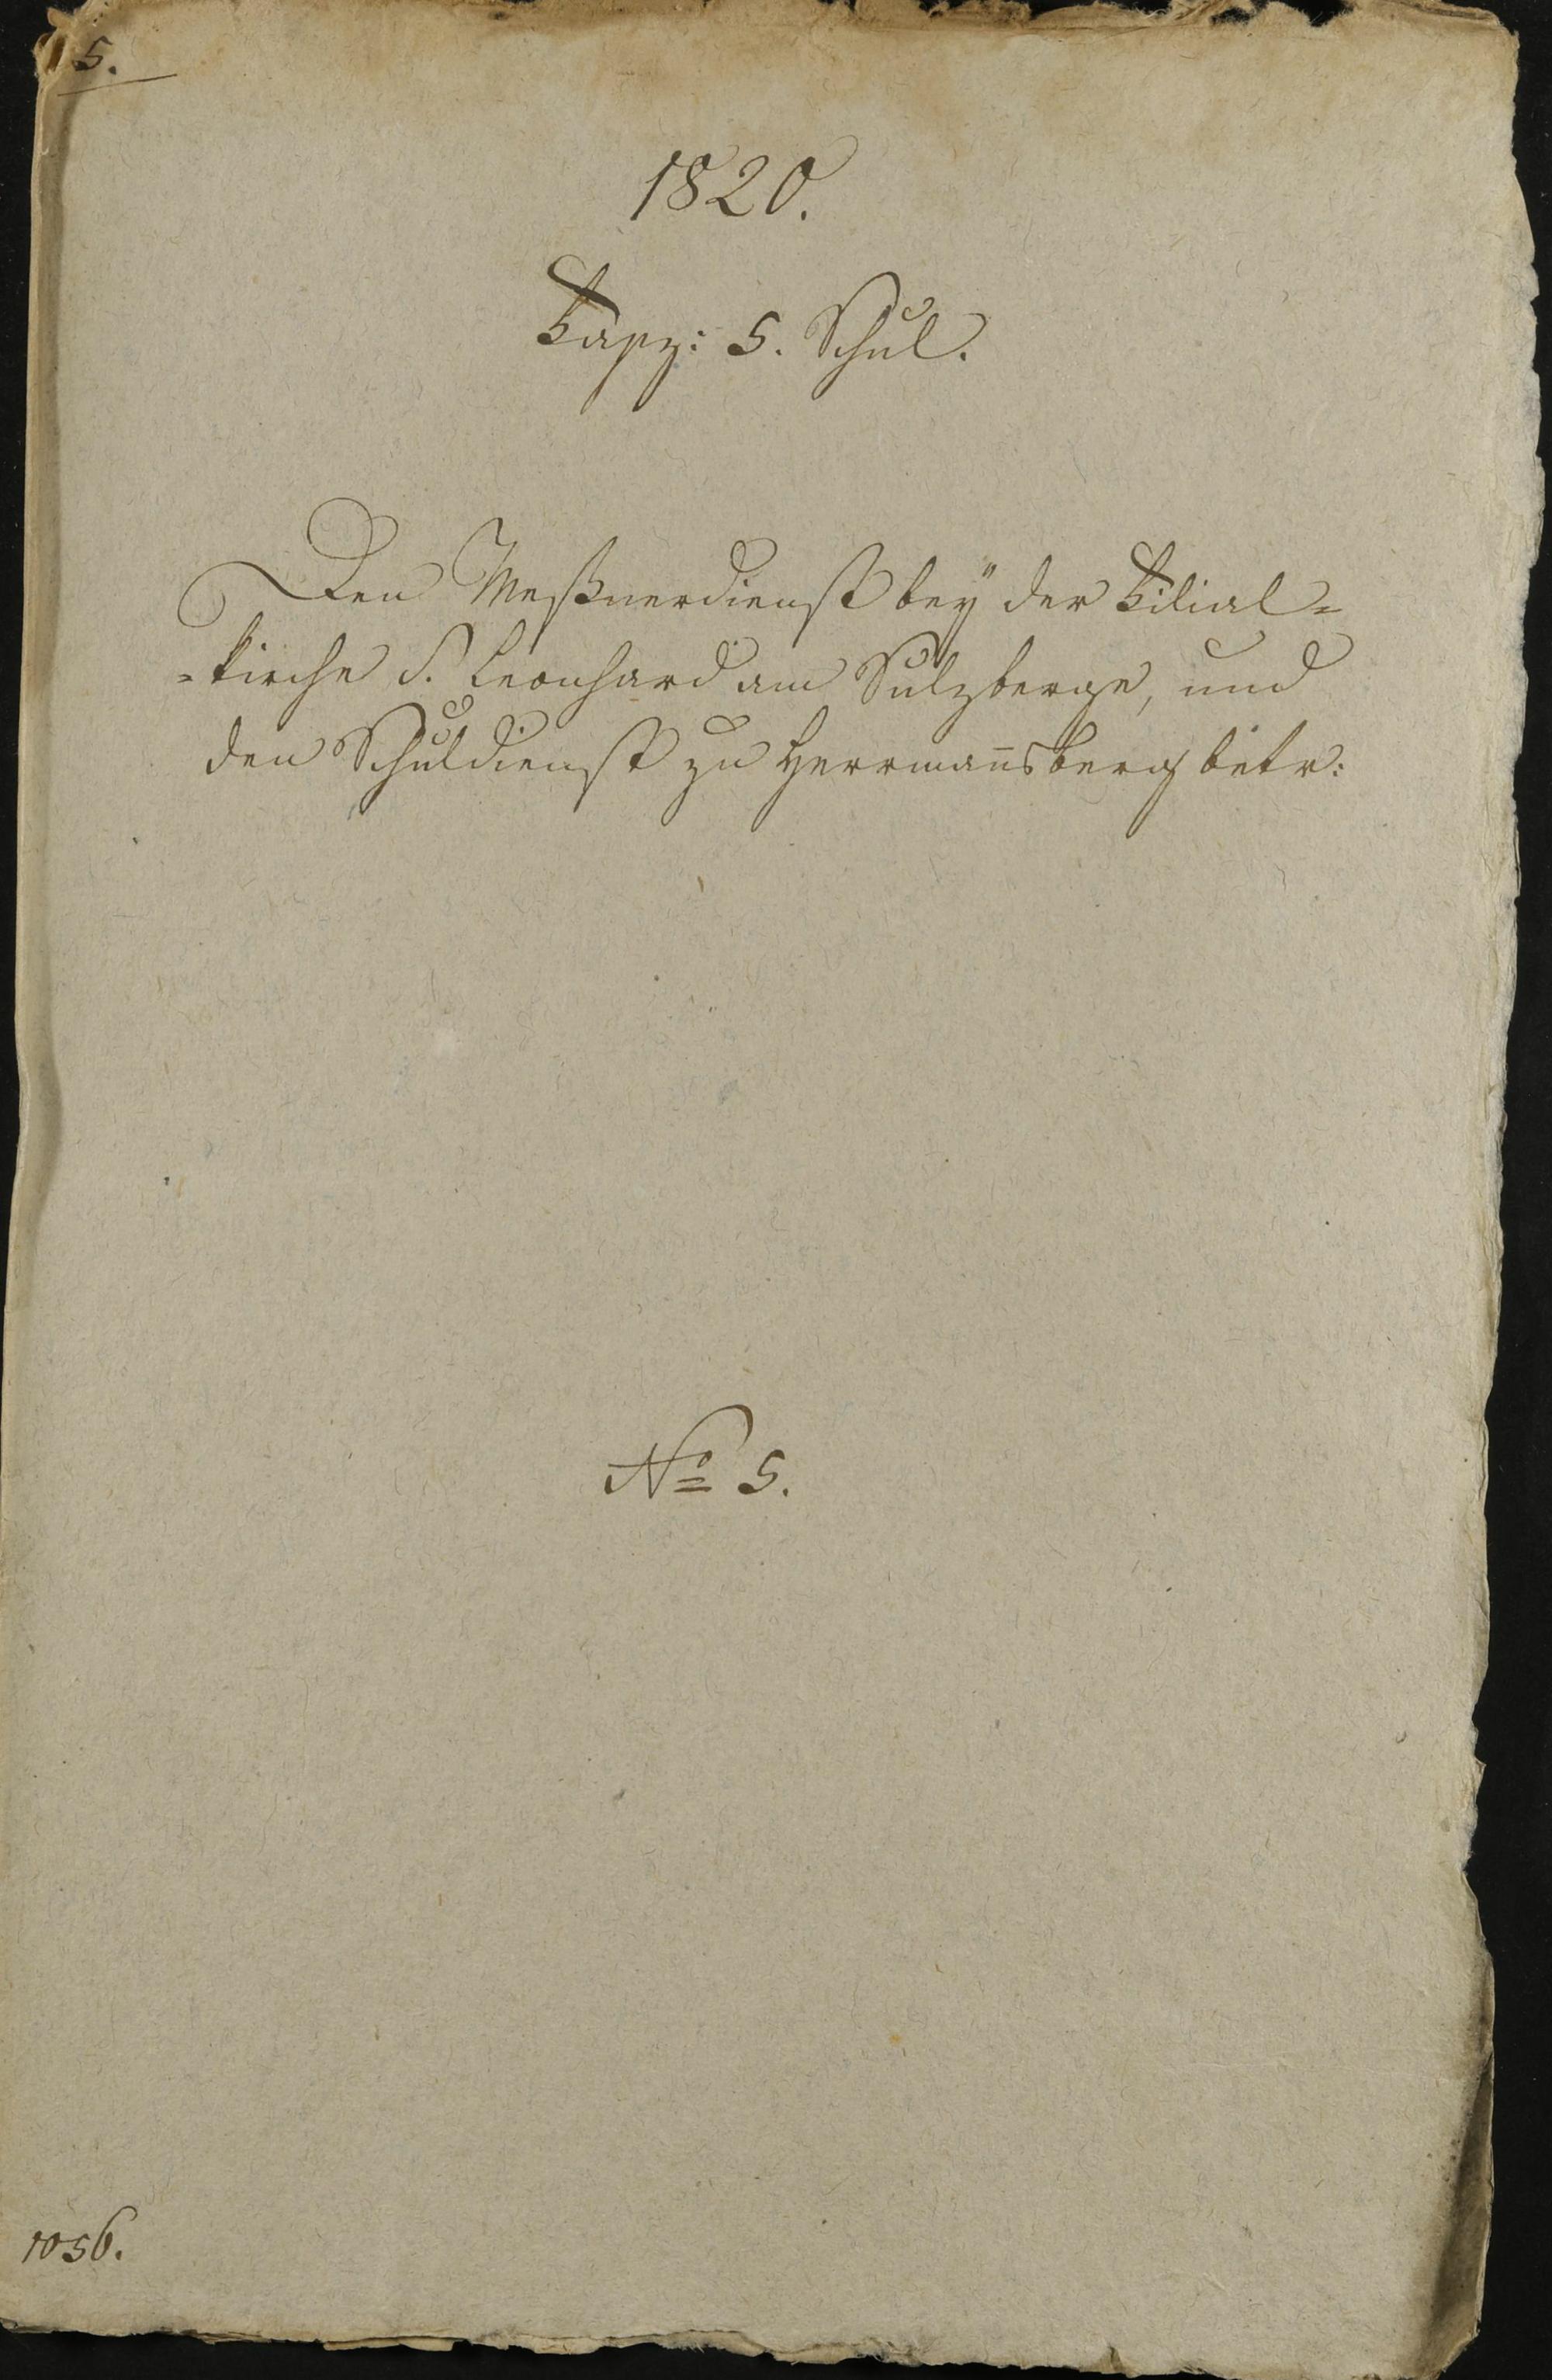 5.
1820.
Fasz: 5. Schul.
Den Meßnerdienst bey der Filial=
=kirche S. Leonhard am Sulzberge, und
den Schuldienst zu Herrman̄sberg betr:
No 5.
1056.